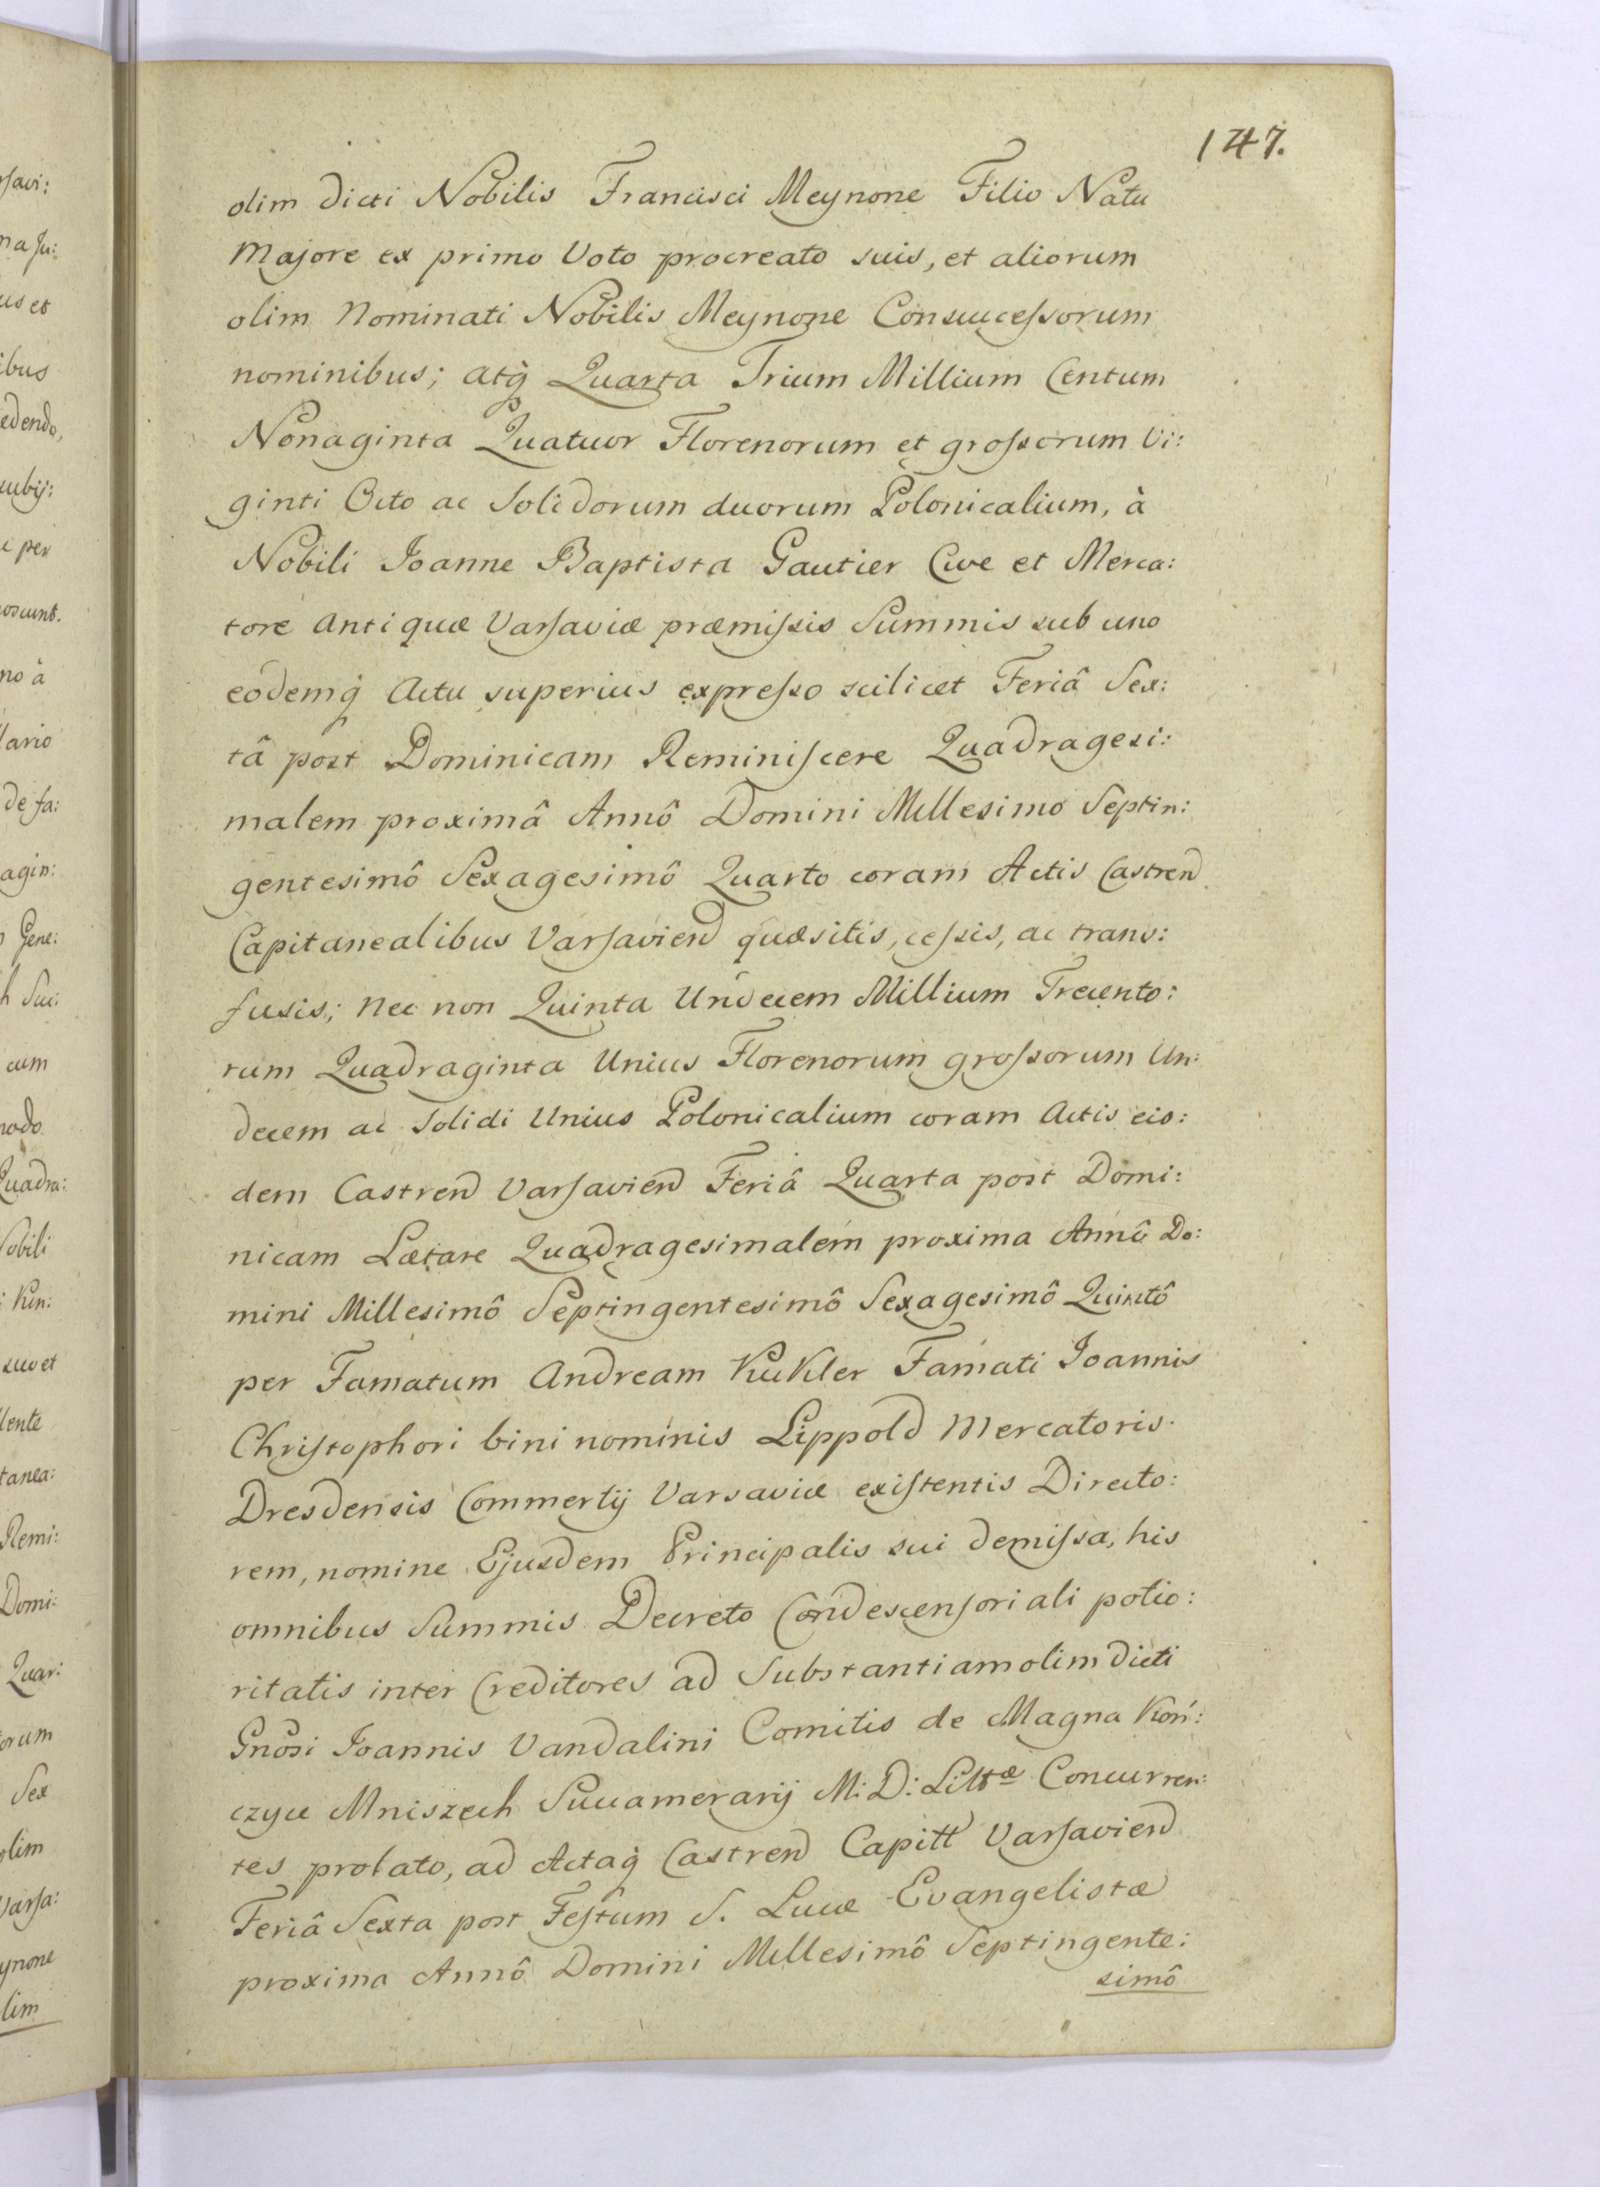 147.
olim dicti Nobilis Francisci Meynone Filio Natu
Majore ex primo Voto procreato suis, et aliorum
olim Nominati Nobilis Meynone Consuccessorum
nominibus; atq̀ Quarta Trium Millium Centum
Nonaginta Quatuor Florenorum et grossorum Vi:
ginti Octo ac Solidorum duorum Polonicalium, à
Nobili Joanne Baptista Gautier Cive et Merca:
tore Antiquæ Varsaviæ præmissis Summis sub uno
eodemq̀ Actu superius expresso scilicet Feriâ Sex:
tâ post Dominicam Reminiscere Quadragesi:
malem proximâ Annô Domini Millesimo Septin:
gentesimô Sexagesimô Quarto coram Actis Castren
Capitanealibus Varsavien quæsitis, cessis, ac trans:
fusis; nec non Quinta Undecem Millium Trecento:
rum Quadraginta Unius Florenorum grossorum Un:
decem ac Solidi Unius Polonicalium coram Actis eis:
dem Castren Varsavien Feriâ Quarta post Domi:
nicam Lætare Quadragesimalem proxima Annô Do:
mini Millesimô Septingentesimô Sexagesimô Quintô
per Famatum Andream Kukler Famati Joannis
Christophori bini nominis Lippold Mercatoris
Dresdensis Commertij Varsaviæ existentis Directo:
rem, nomine Ejusdem Principalis sui demissa, his
omnibus Summis Decreto Condescensoriali potio:
ritatis inter Creditores ad Substantiam olim dicti
Gnosi Joannis Vandalini Comitis de Magna Koń:
czyce Mniszech Succamerarij M: D: Littæ Concurren:
tes prolato, ad Actaq̀ Castren Capitt Varsavien
Feriâ Sexta post Festum S. Lucæ Evangelistæ
proxima Annô Domini Millesimô Septingente:
simô